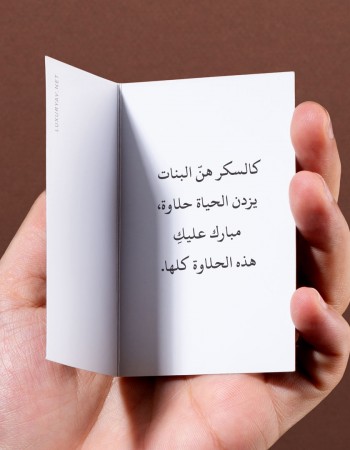 LUXURYBY.NET
كالسكر هنّ البنات
يزدن الحياة حلاوة،
مبارك عليكِ
هذه الحلاوة كلها.